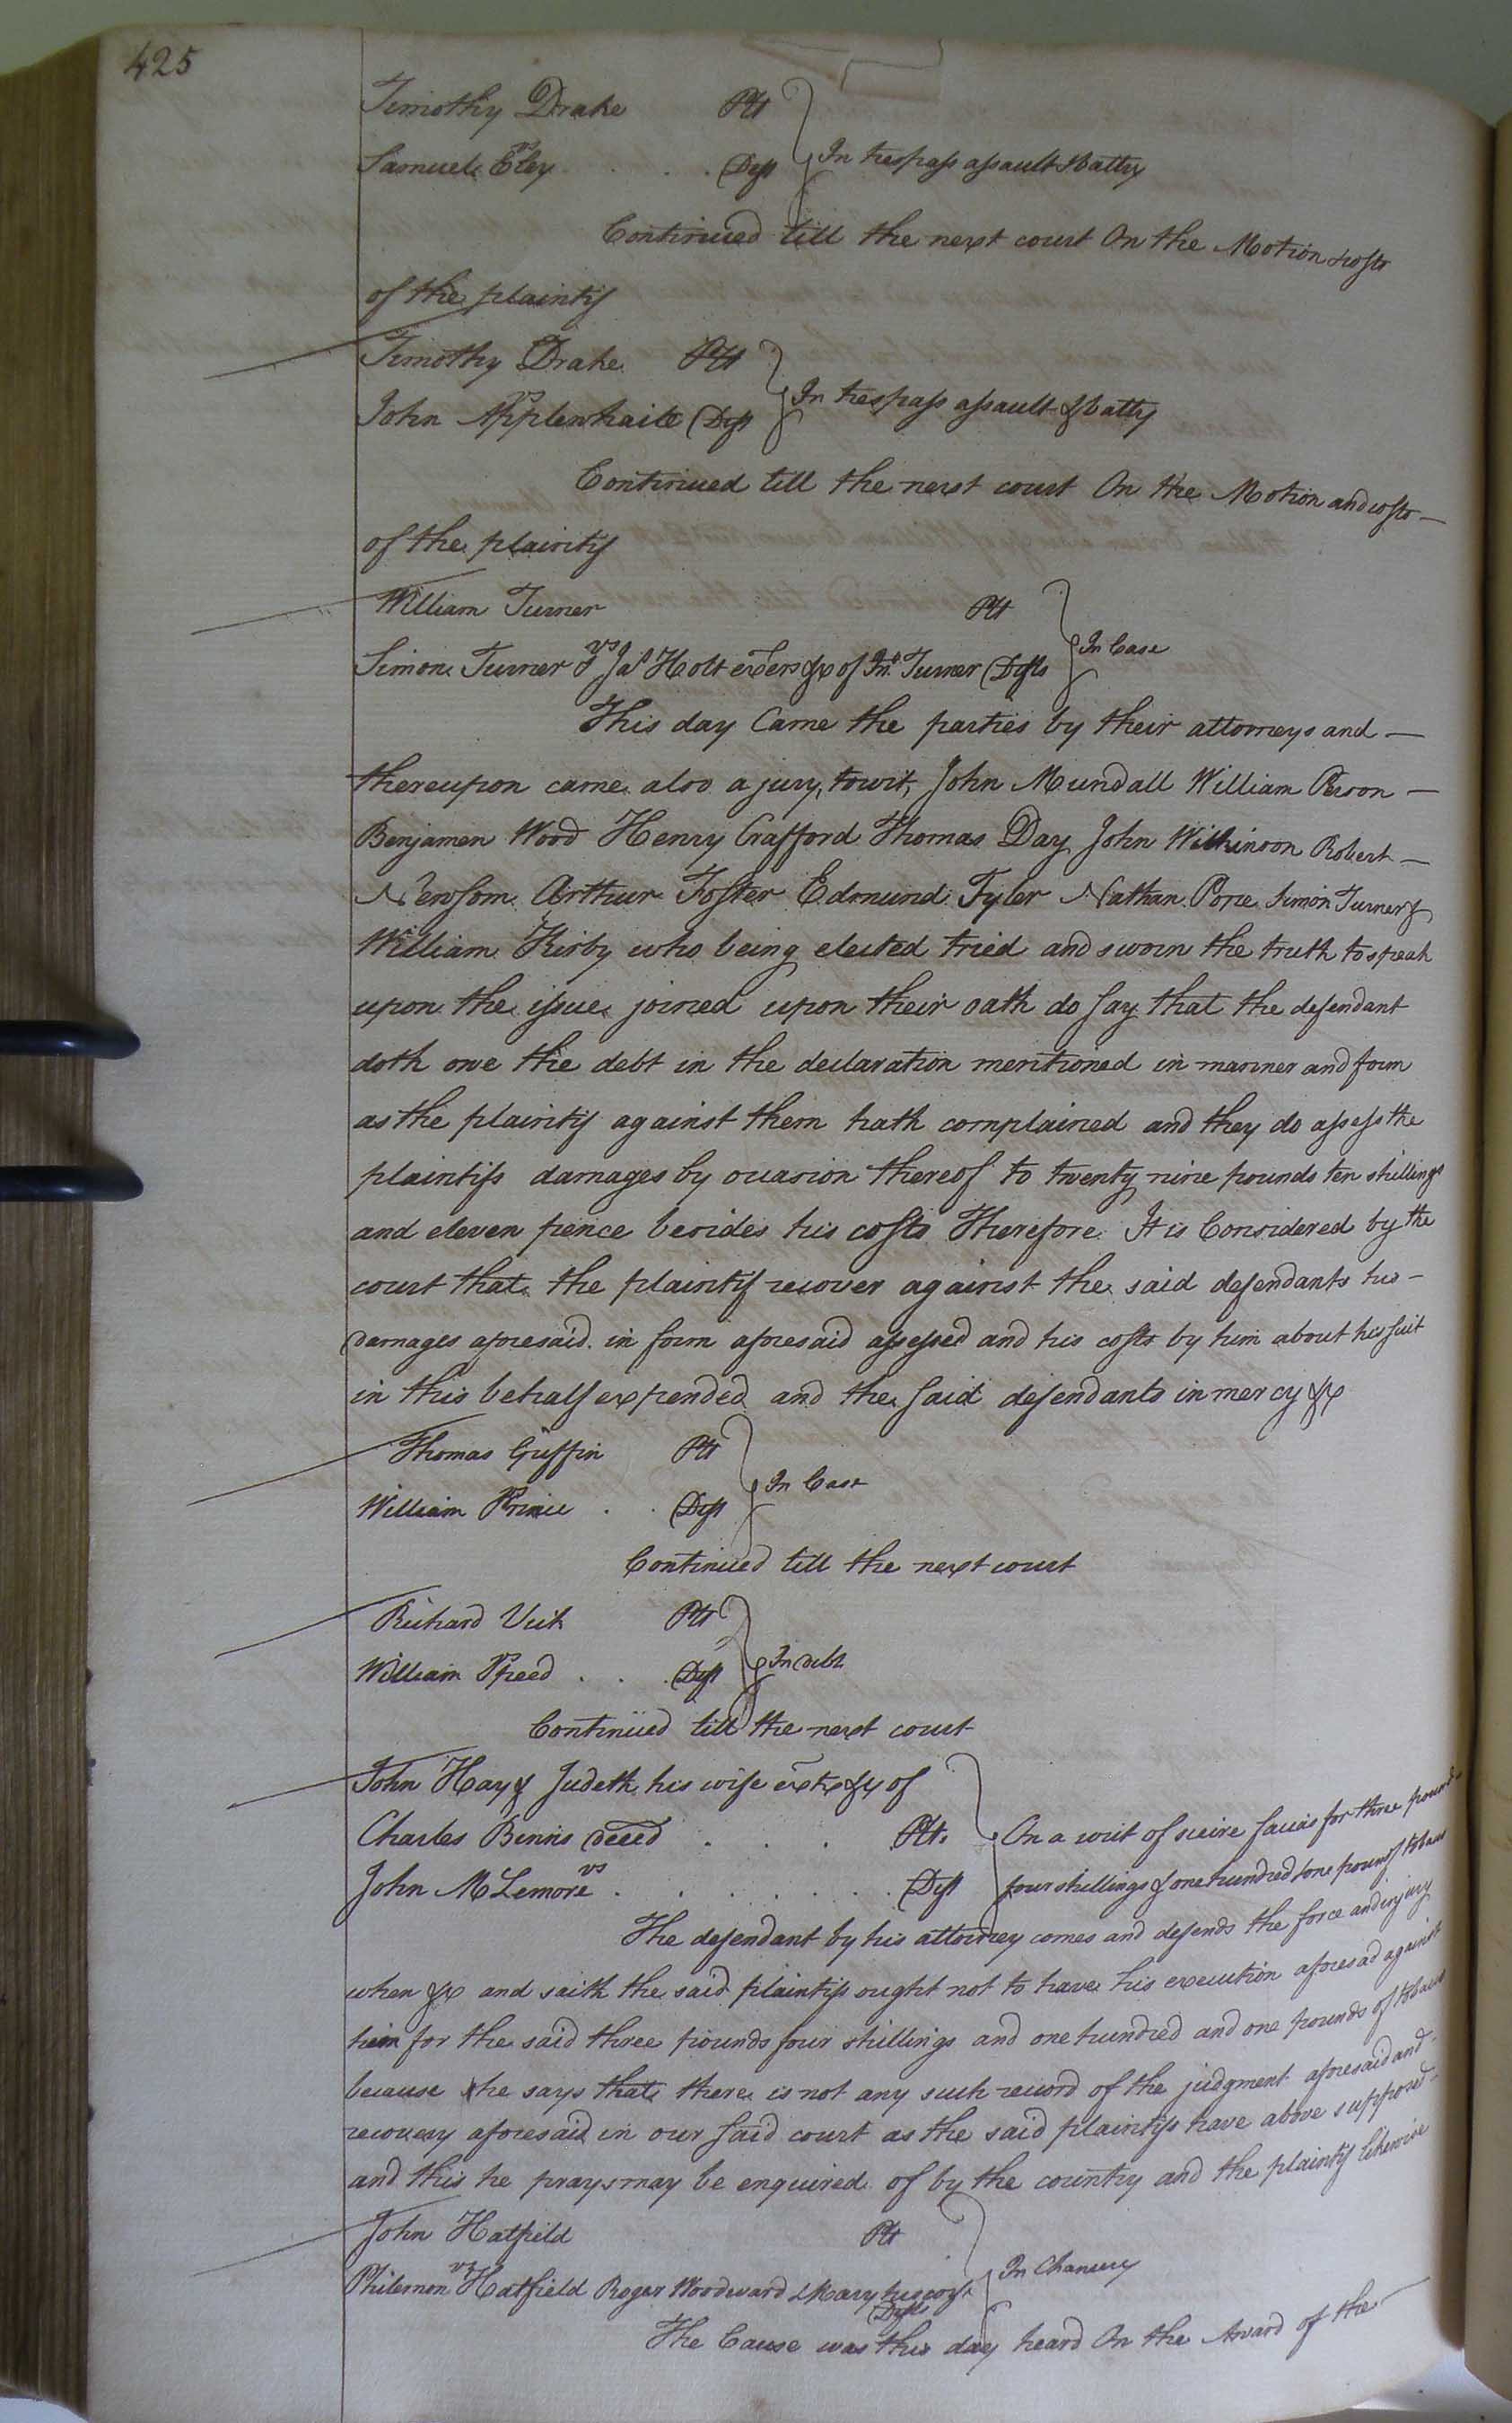 425
Timothy Drake Plt
vs
Samuel Eley . . . Deft } In trespass assault & battry
Continued till the next court On the Motion & costs
of the plaintif
Timothy Drake Plt
vs
John Applewhaite Deft } In trespass assault & batty
Continued till the next court On the Motion and costs —
of the plaintif
William Turner Plt
vs
Simon Turner & Jas Holt exters &c of Jno. Turner Defts } In Case
This day Came the parties by their attorneys and —
thereupon came also a jury, towit, John Mundall William Person —
Benjamen Wood Henry Crafford Thomas Day John Wilkinson Robert —
Newsom Arthur Foster Edmund Tyler Nathan Pope Simon Turner &
William Kirby who being elected tried and sworn the truth to speak
upon the issue joined upon their oath do say that the defendant
doth owe the debt in the declaration mentioned in manner and form
as the plaintif against them hath complained and they do assess the
plaintifs damages by occasion thereof to twenty nine pounds ten shillings
and eleven pence besides his costs Therefore It is Considered by the
court that the plaintif recover against the said defendants his —
damages aforesaid in form aforesaid assessed and his costs by him about his suit
in this behalf expended and the said defendants in mercy &c
Thomas Griffin Plt
vs
William Prince . . Deft } In Case
Continued till the next court
Richard Vick Plt
vs
William Speed . . . Deft } In debt
Continued till the next court
John Hay & Judeth his wife extx &c of
Charles Binns deced . . . Plts. } On a writ of scire facias for three pounds
vs
John McLemore . . . . . . . Deft four shillings & one hundred & one pound of tobacco
The defendant by his attorney comes and defends the force and injury
when &c and saith the said plaintifs ought not to have his execution aforesad against
him for the said three pounds four shillings and one hundred and one pounds of tobacco
because he says that there is not any such record of the judgment aforesaid and
recovery aforesaid in our said court as the said plaintifs have above supposed
and this he prays may be enquired of by the country and the plaintif likewise
John Hatfield Plt
vs
Philemon Hatfield Roger Woodward & Mary his wife } In Chancery
Defts
The Cause was this day heard On the Award of the —